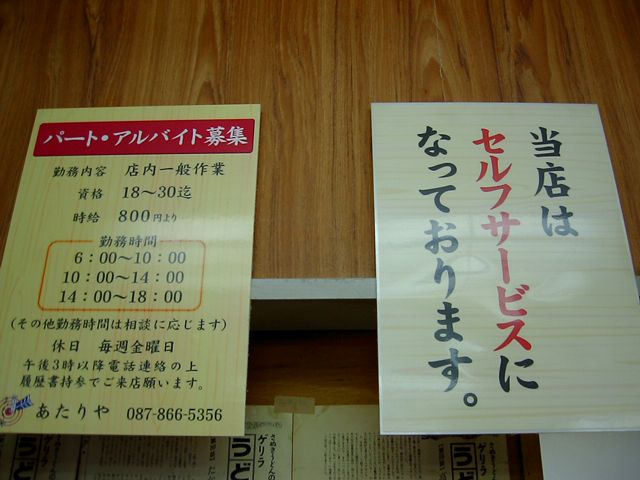 パート・アルバイト募集
勤務内容 店内一般作業
資格 18～30迄
時給 800円より
勤務時間
6：00～10：00
10：00～14：00
14：00～18：00
(その他勤務時間は相談に応じます)
休日 毎週金曜日
午後3時以降電話連絡の上
履歴書持参でご来店願います。
あたりや 087-866-5356
当店は
セルフサービスに
なっております。
さぬきうどんの
ゲリラ
うど
さぬきうどんの
ゲリラ
うど